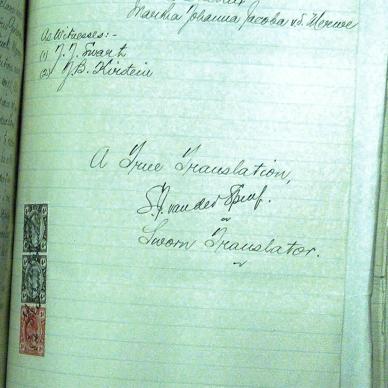 Martha Johanna Jacoba v.d. Merwe
As Witnesses:-
(1) J. J. Swart
(2) J. B. Kirstein
A True Translation,
S. J. van der Spuy.
Sworn Translator.